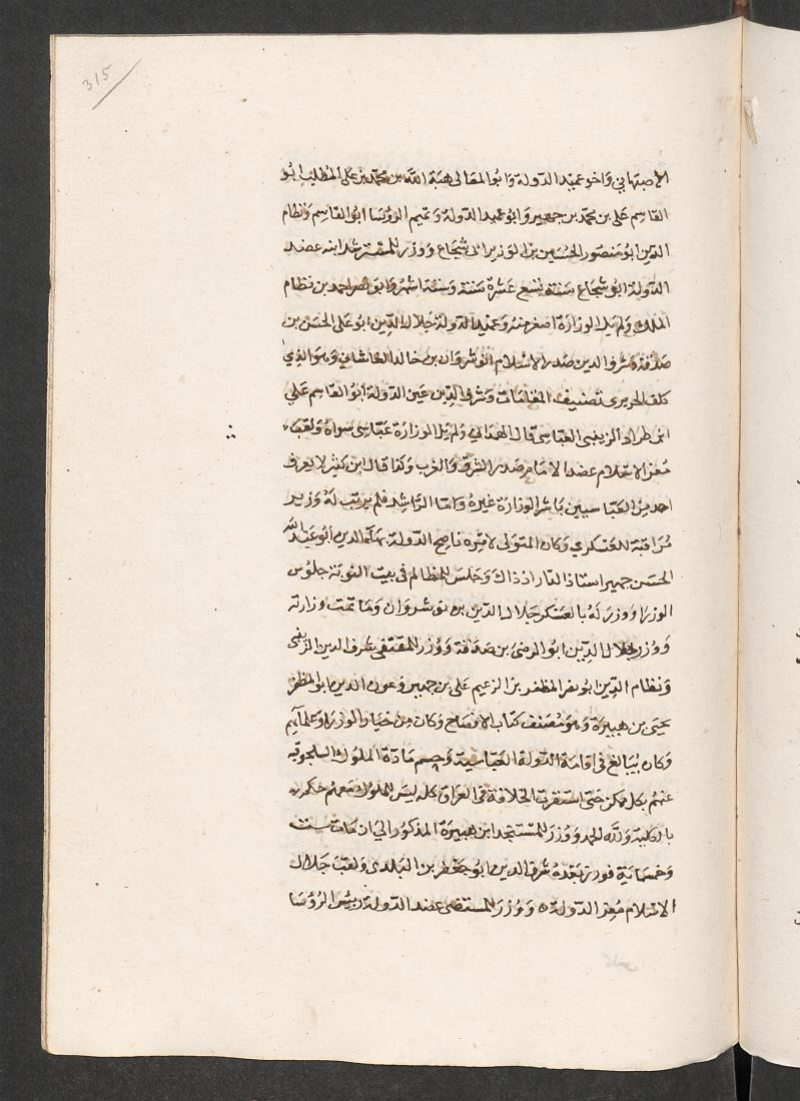 315
الاصبهاني واخو عميد الدولة وابو المعالى هبة الله بن محمد بن على المطلب ابو
القاسم على بن محمد بن جهير وابو عميد الدولة وتميم الرؤسا ابو القاسم ونظام
الدين ابو منصور الحسين بن الوزير ابى شجاع ووزر للمسترشد ابنه عضد
الدولة ابو شجاع سنه تسع عشرة سنة وستة اشهر وابو نصر احمد بن نظام
الملك ولم يل الوزارة اصغر منه وعميد الدولة جلال الدين ابو على الحسن بن
صدقة وشرف الدين صدر الاسلام انوشروان بن خالد القاشانى وهو الذي
كلف الحريرى تصنيف المقامات وشرف الدين عين الدولة ابو القاسم علي
ابن طراد الزينبى العباسى قال الهمداني ولم يل الوزارة عباسى سواه ولقب
معز الاسلام عضد الامام صدر الشرق والغرب وكذا قال ابن كثير لا يعرف
احد من العباسيين باشر الوزارة غيره واما الراشد فلم يرتب له وزير
مراقبة للعسكري وكان المتولى لامره ناصح الدولة بهاء الدين ابو عبد الله
الحسن جهير استاذ الدار اذ ذاك وجلس للمظالم فى بيت النوبة جلوس
الوزرا ووزر له بالعسكر جلال الدين بن نوشروان وما تمت وزارته
ووزر جلال الدين ابو الرضى بن صدقة ووزر للمقتفى شرف الدين الزينبى
ونظام الدين ابو نصر المظفر بن الزعيم على بن جهير وعون الدين ابو المظفر
يحيى بن هبيرة وهو مصنف كتاب الافصاح وكان من خيار الوزراء وعلمائهم
وكان يبالغ فى اقامة الدولة العباسية وحسم مادة الملوك السلجوقيه
عنهم بكل ممكن حتى استقرت الخلافة فى العراق كله ليس للملوك معهم حكم
بالكلية ولله الحمد ووزر للمستنجد ابن هبيرة المذكور الى ان مات ست
وخمسماية فوزر بعده شرف الدين ابو جعفر بن البلدى ولقب جلال
الاسلام معز الدولة ووزر للمستضى عضد الدولة رئيس الرؤسا